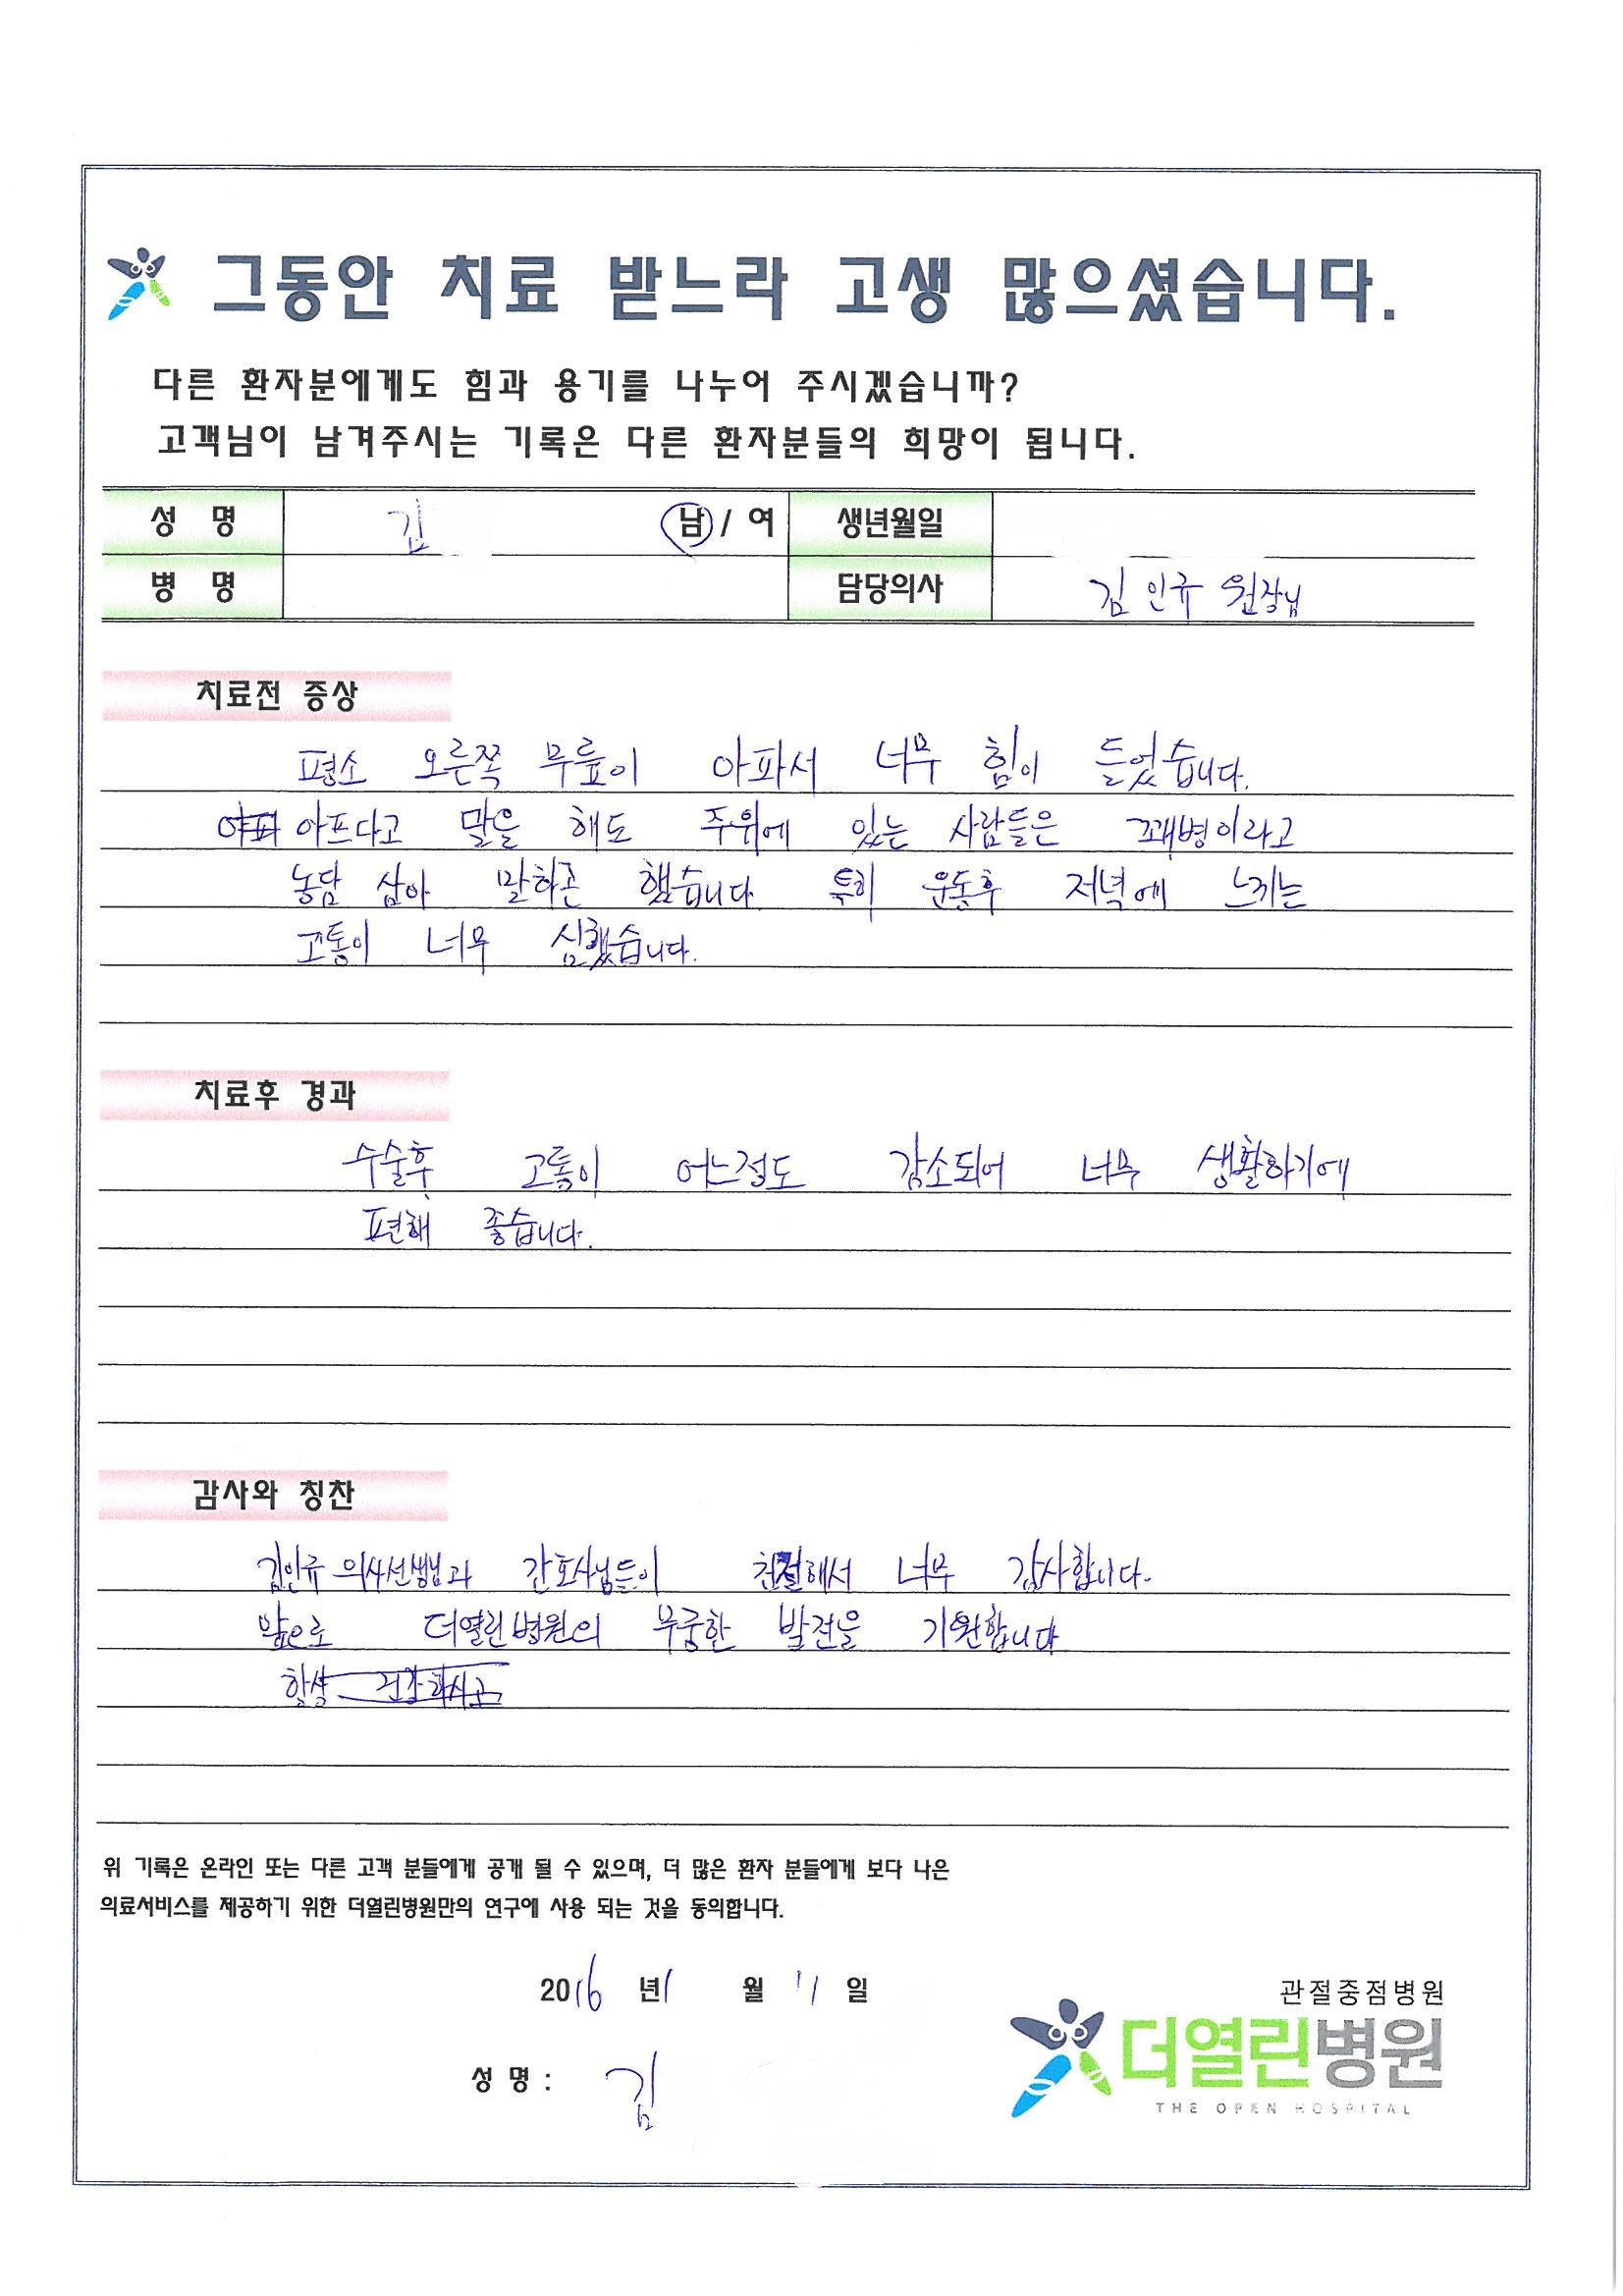 그동안 치료 받느라 고생 많으셨습니다.
다른 환자분에게도 힘과 용기를 나누어 주시겠습니까?
고객님이 남겨주시는 기록은 다른 환자분들의 희망이 됩니다.
성 명 김 남 / 여 생년월일
병 명 담당의사 김인규 원장님
치료전 증상
평소 오른쪽 무릎이 아파서 너무 힘이 들었습니다.
아파 아프다고 말을 해도 주위에 있는 사람들은 꾀병이라고
농담 삼아 말하곤 했습니다. 특히 운동후 저녁에 느끼는
고통이 너무 심했습니다.
치료후 경과
수술후 고통이 어느정도 감소되어 너무 생활하기에
편해 좋습니다.
감사와 칭찬
김인규 의사선생님과 간호사님들이 친절해서 너무 감사합니다.
앞으로 더열린병원의 무궁한 발전을 기원합니다
항상 건강하시고
위 기록은 온라인 또는 다른 고객 분들에게 공개 될 수 있으며, 더 많은 환자 분들에게 보다 나은
의료서비스를 제공하기 위한 더열린병원만의 연구에 사용 되는 것을 동의합니다.
2016 년 1 월 11 일
성 명 : 김
관절중점병원
더열린병원
THE OPEN HOSPITAL